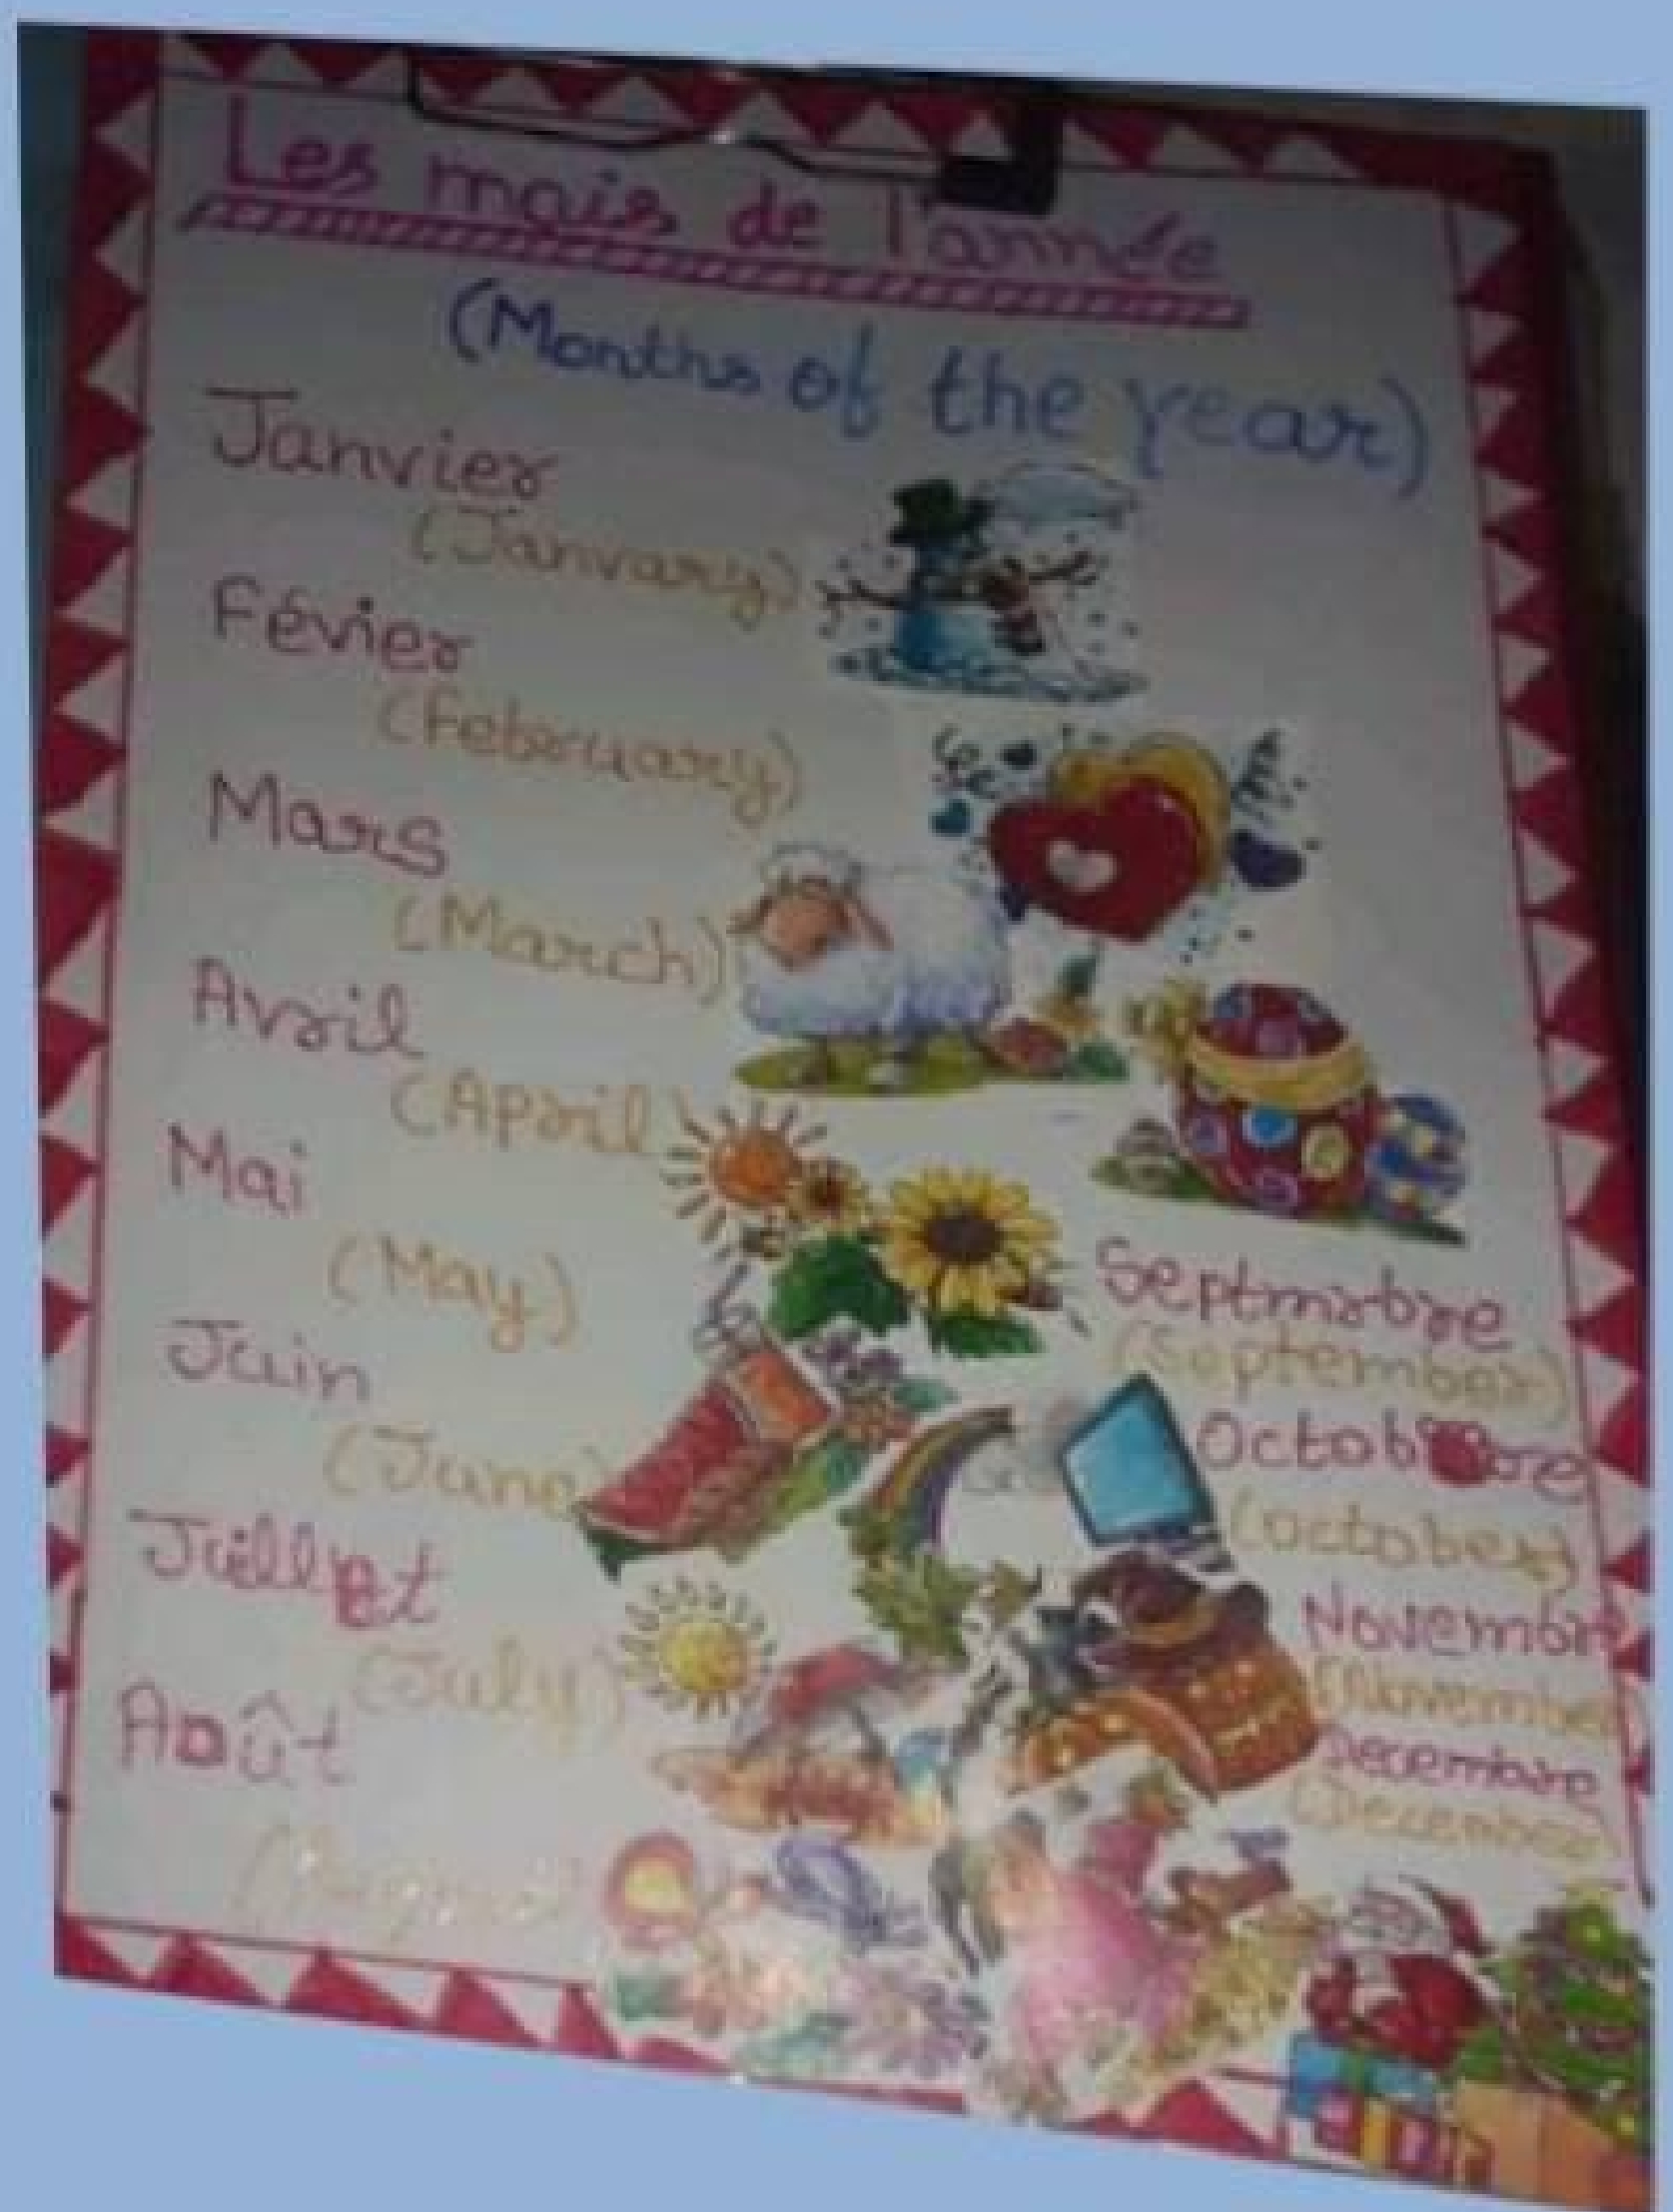 Les mois de l'année
(Months of the year)
Janvier
(January)
Févier
(February)
Mars
(March)
Avril
(April)
Mai
(May)
Juin
(June)
Juillet
(July)
Août
Septmbre
(September)
Octobre
(october)
Novembr
(November
Decembre
(December)